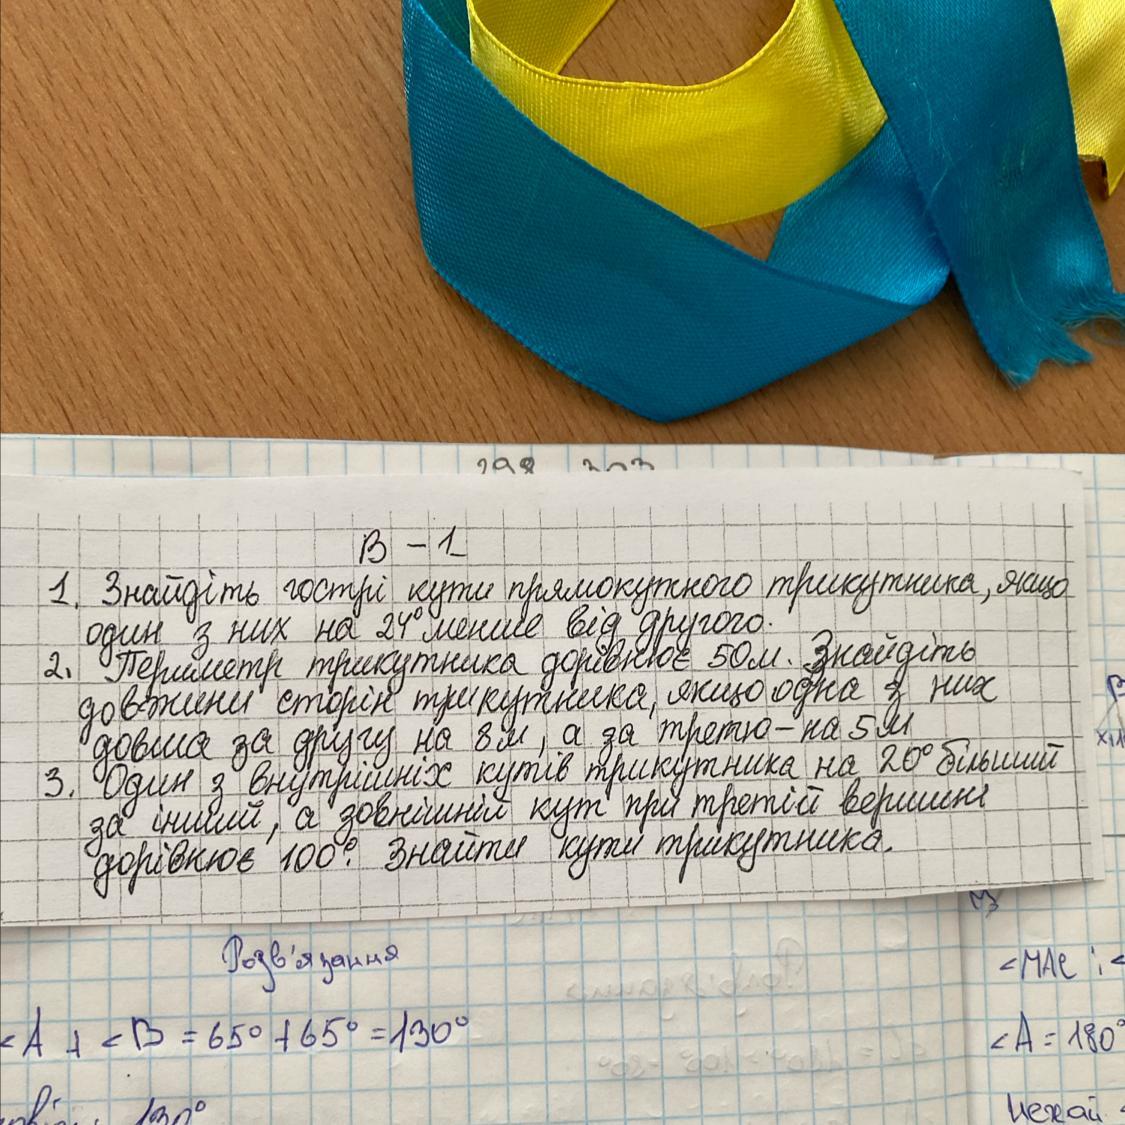 298 303
В - 1
1. Знайдіть гострі кути прямокутного трикутника, якщо
один з них на 24° менше від другого.
2. Периметр трикутника дорівнює 50м. Знайдіть
довжини сторін трикутника, якщо одна з них
довша за другу на 8м, а за третю - на 5м
3. Один з внутрішніх кутів трикутника на 20° більший
за інший, а зовнішній кут при третій вершині
дорівнює 100°. Знайти кути трикутника.
Розв'язання
<A + <B = 65° + 65° = 130°
130°
<MAC і <
<A = 180°
Нехай